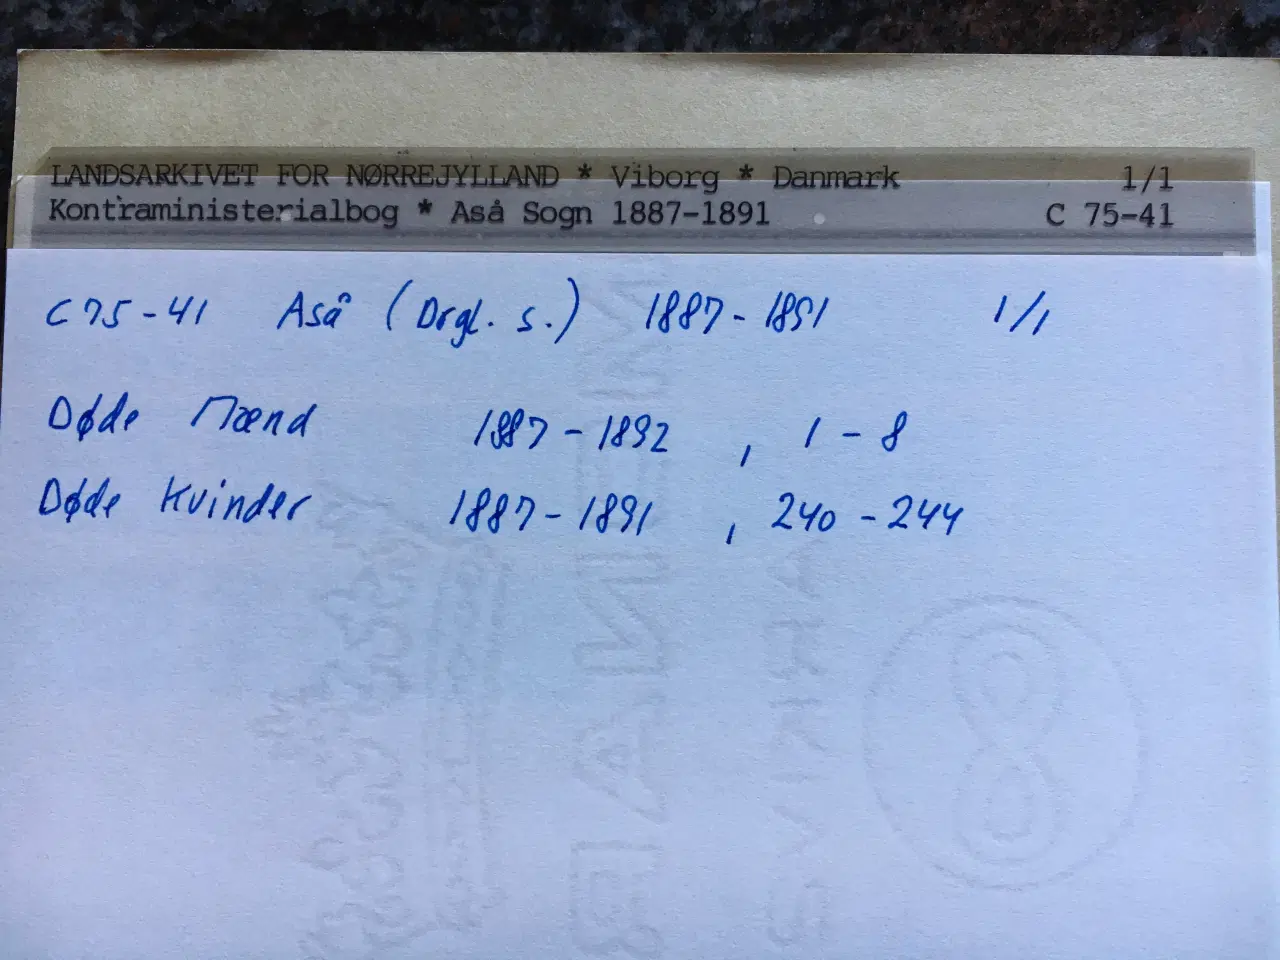 LANDSARKIVET FOR NØRREJYLLAND * Viborg * Danmark 1/1
Kontraministerialbog * Aså Sogn 1887-1891 C 75-41
C75-41 Aså (Drgl. s.) 1887-1891 1/1
Døde Mænd 1887-1892, 1-8
Døde Kvinder 1887-1891, 240-244